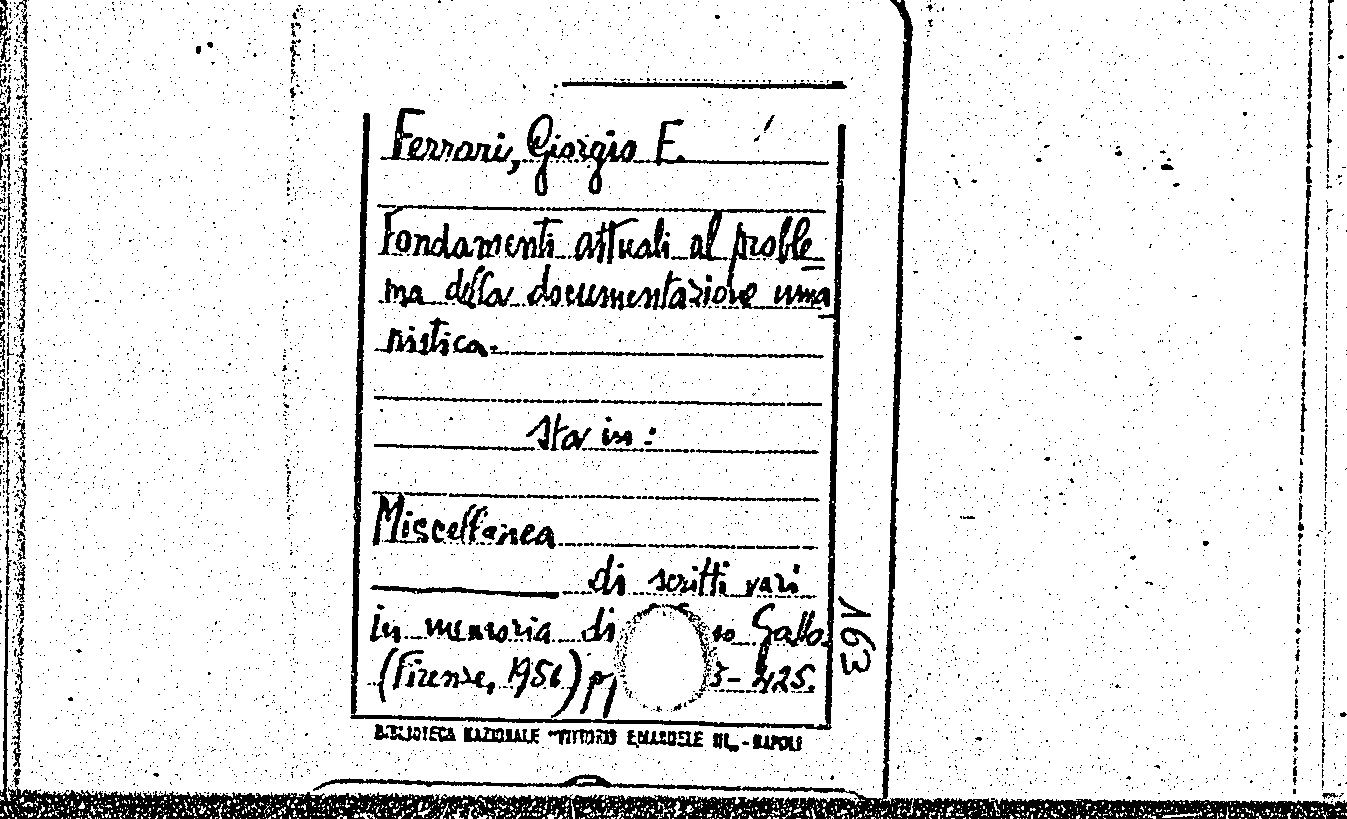 Ferrari, Giorgio E.
Fondamenti attuali al proble
ma della documentazione uma
nistica.
sta in:
Miscellanea
di scritti vari
in memoria di Gallo.
(Firenze, 1956) pp 425.
BIBLIOTECA NAZIONALE "VITTORIO EMANUELE III„ - NAPOLI